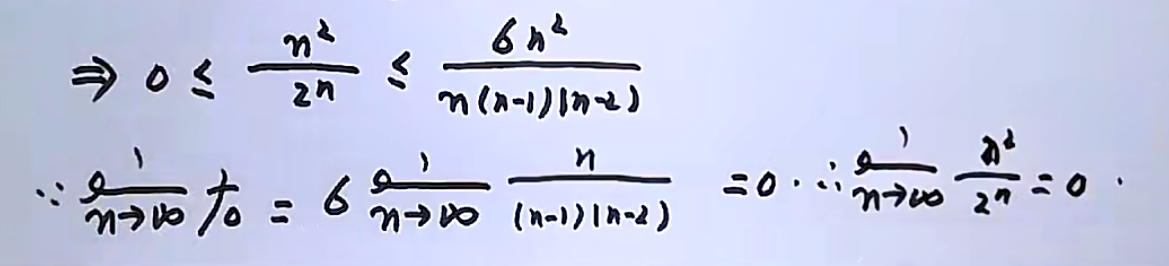 ⇒ 0 ≤ n²/2ⁿ ≤ 6n²/n(n-1)(n-2)
∵ lim n→∞ 右 = 6 lim n→∞ n/(n-1)(n-2) = 0. ∴ lim n→∞ n²/2ⁿ = 0.